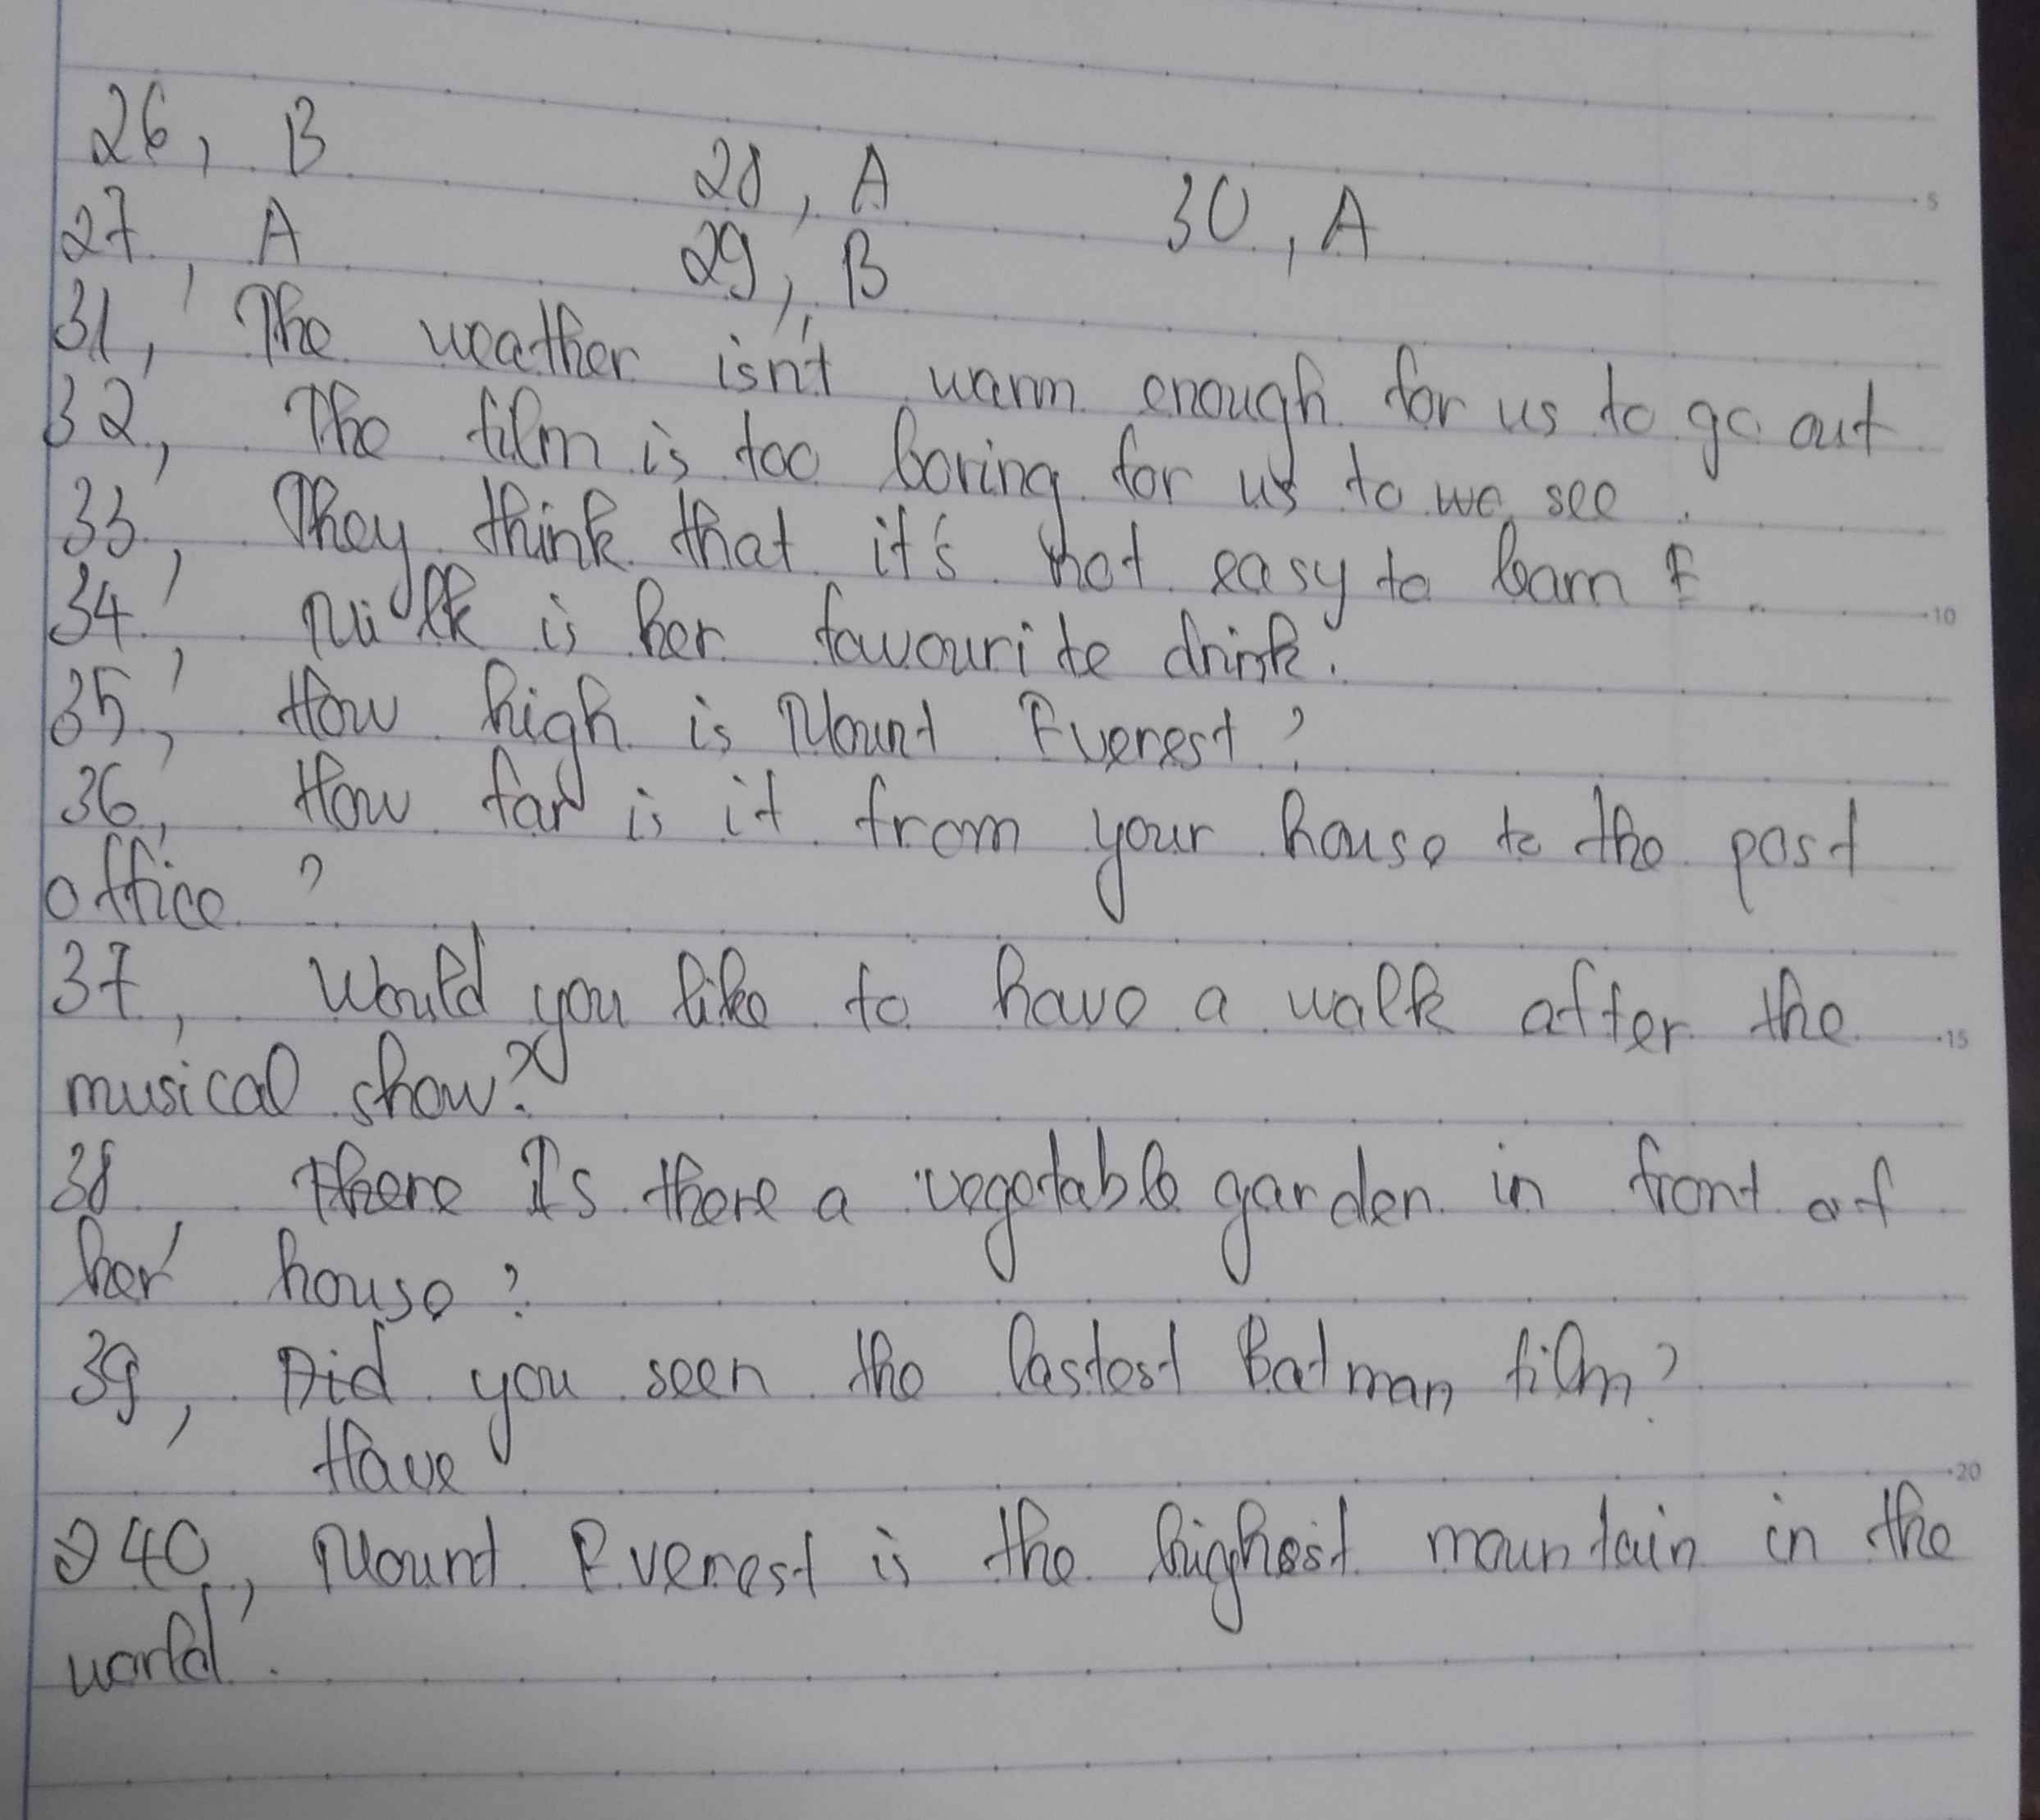 26, B
28, A 30, A
27, A
29, B
31, The weather isn't warm enough for us to go out
32, The film is too boring for us to we see.
33, They think that it's not easy to learn E
34, Milk is her favourite drink.
35, How high is Mount Everest?
36, How far is it from your house to the post
office?
37, Would you like to have a walk after the
musical show?
38 There Is there a vegetable garden in front of
her house?
39, Did you seen the lastest Batman film?
Have
40, Mount Everest is the highest mountain in the
world.
5
10
15
20